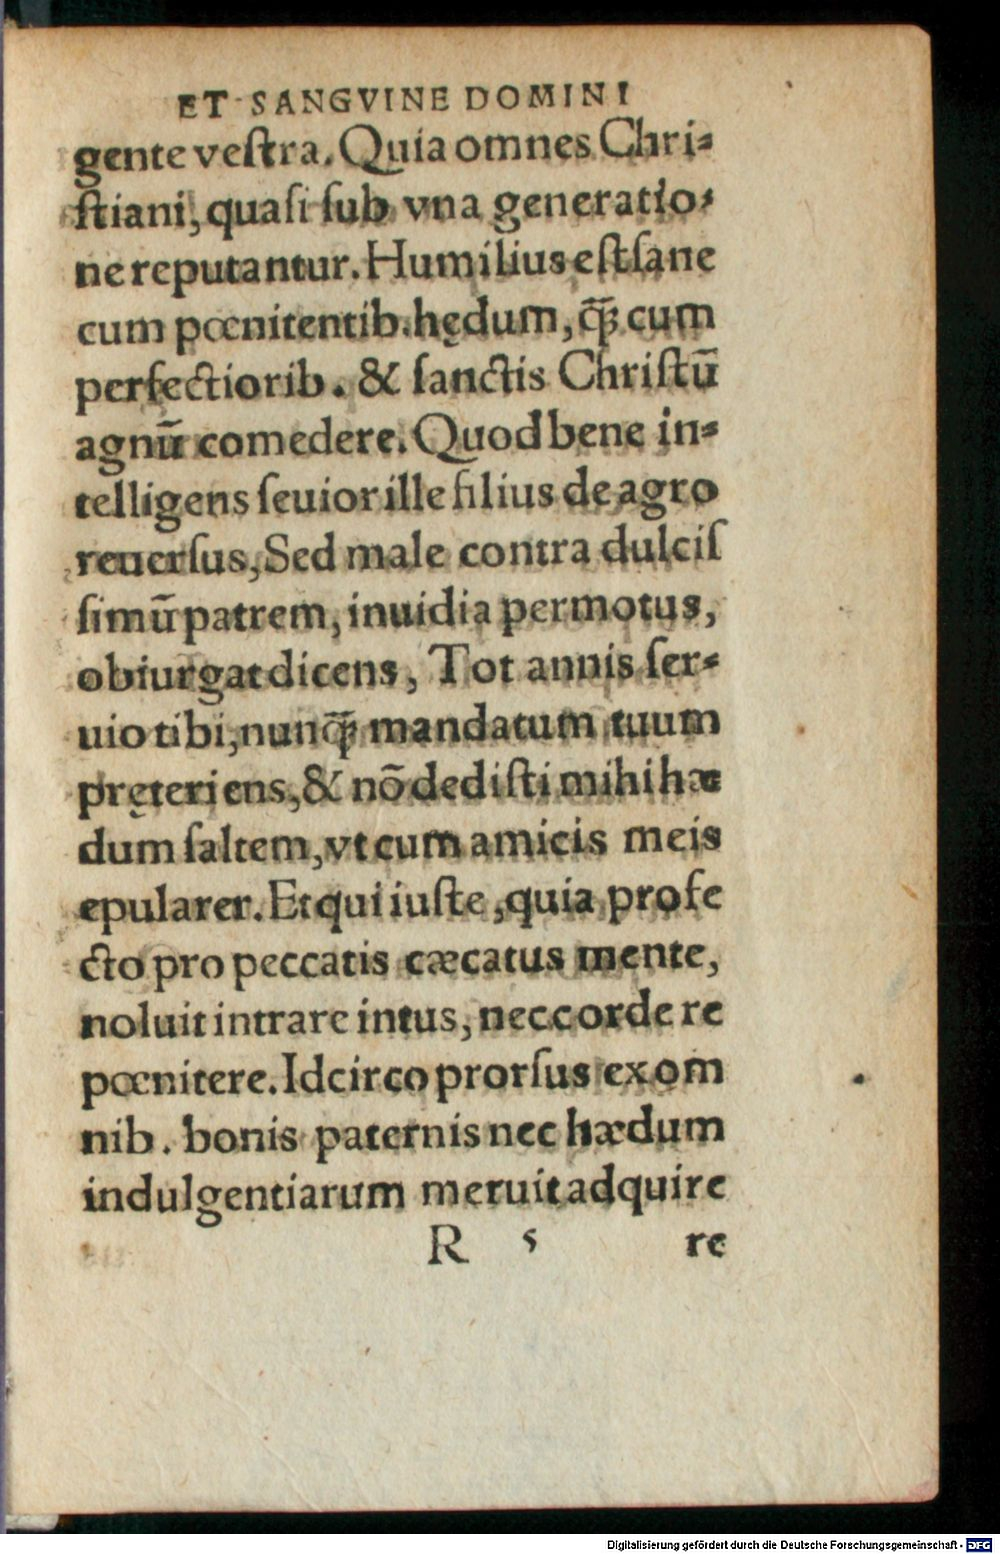 ET SANGVINE DOMINI
gente veſtra. Quia omnes Chri⸗
ſtiani, quaſi ſub vna generatio⸗
ne reputantur. Humilius eſt ſane
cum pœnitentib. hędum, q̄ꝫ cum
perfectiorib. & ſanctis Chriſtū
agnū comedere. Quod bene in⸗
telligens ſeuior ille filius de agro
reuerſus, Sed male contra dulciſ
ſimū patrem, inuidia permotus,
obiurgat dicens, Tot annis ſer⸗
uio tibi, nunq̄ꝫ mandatum tuum
pręteriens, & nō dediſti mihi hæ
dum ſaltem, vt cum amicis meis
epularer. Et qui iuſte, quia profe
cto pro peccatis cæcatus mente,
noluit intrare intus, nec corde re
pœnitere. Idcirco prorſus ex om
nib. bonis paternis nec hædum
indulgentiarum meruit adquire
R 5 re
Digitalisierung gefördert durch die Deutsche Forschungsgemeinschaft - DFG